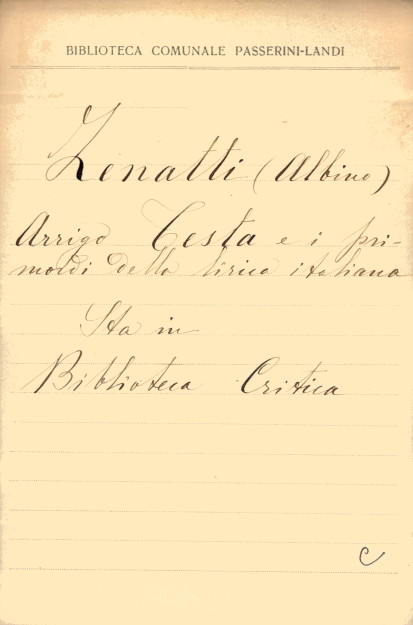 BIBLIOTECA COMUNALE PASSERINI-LANDI
Zenatti (Albino)
Arrigo Testa e i pri-
mordi della lirica italiana
Sta in
Biblioteca Critica
C